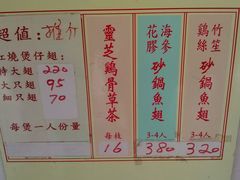 超值：推介
紅燒煲仔翅：
特大翅 220
大只翅 95
細只翅 70
每煲一人份量
靈芝鷄骨草茶
每枝
16
花膠海參砂鍋魚翅
3-4人
380
鷄絲竹笙砂鍋魚翅
3-4人
320